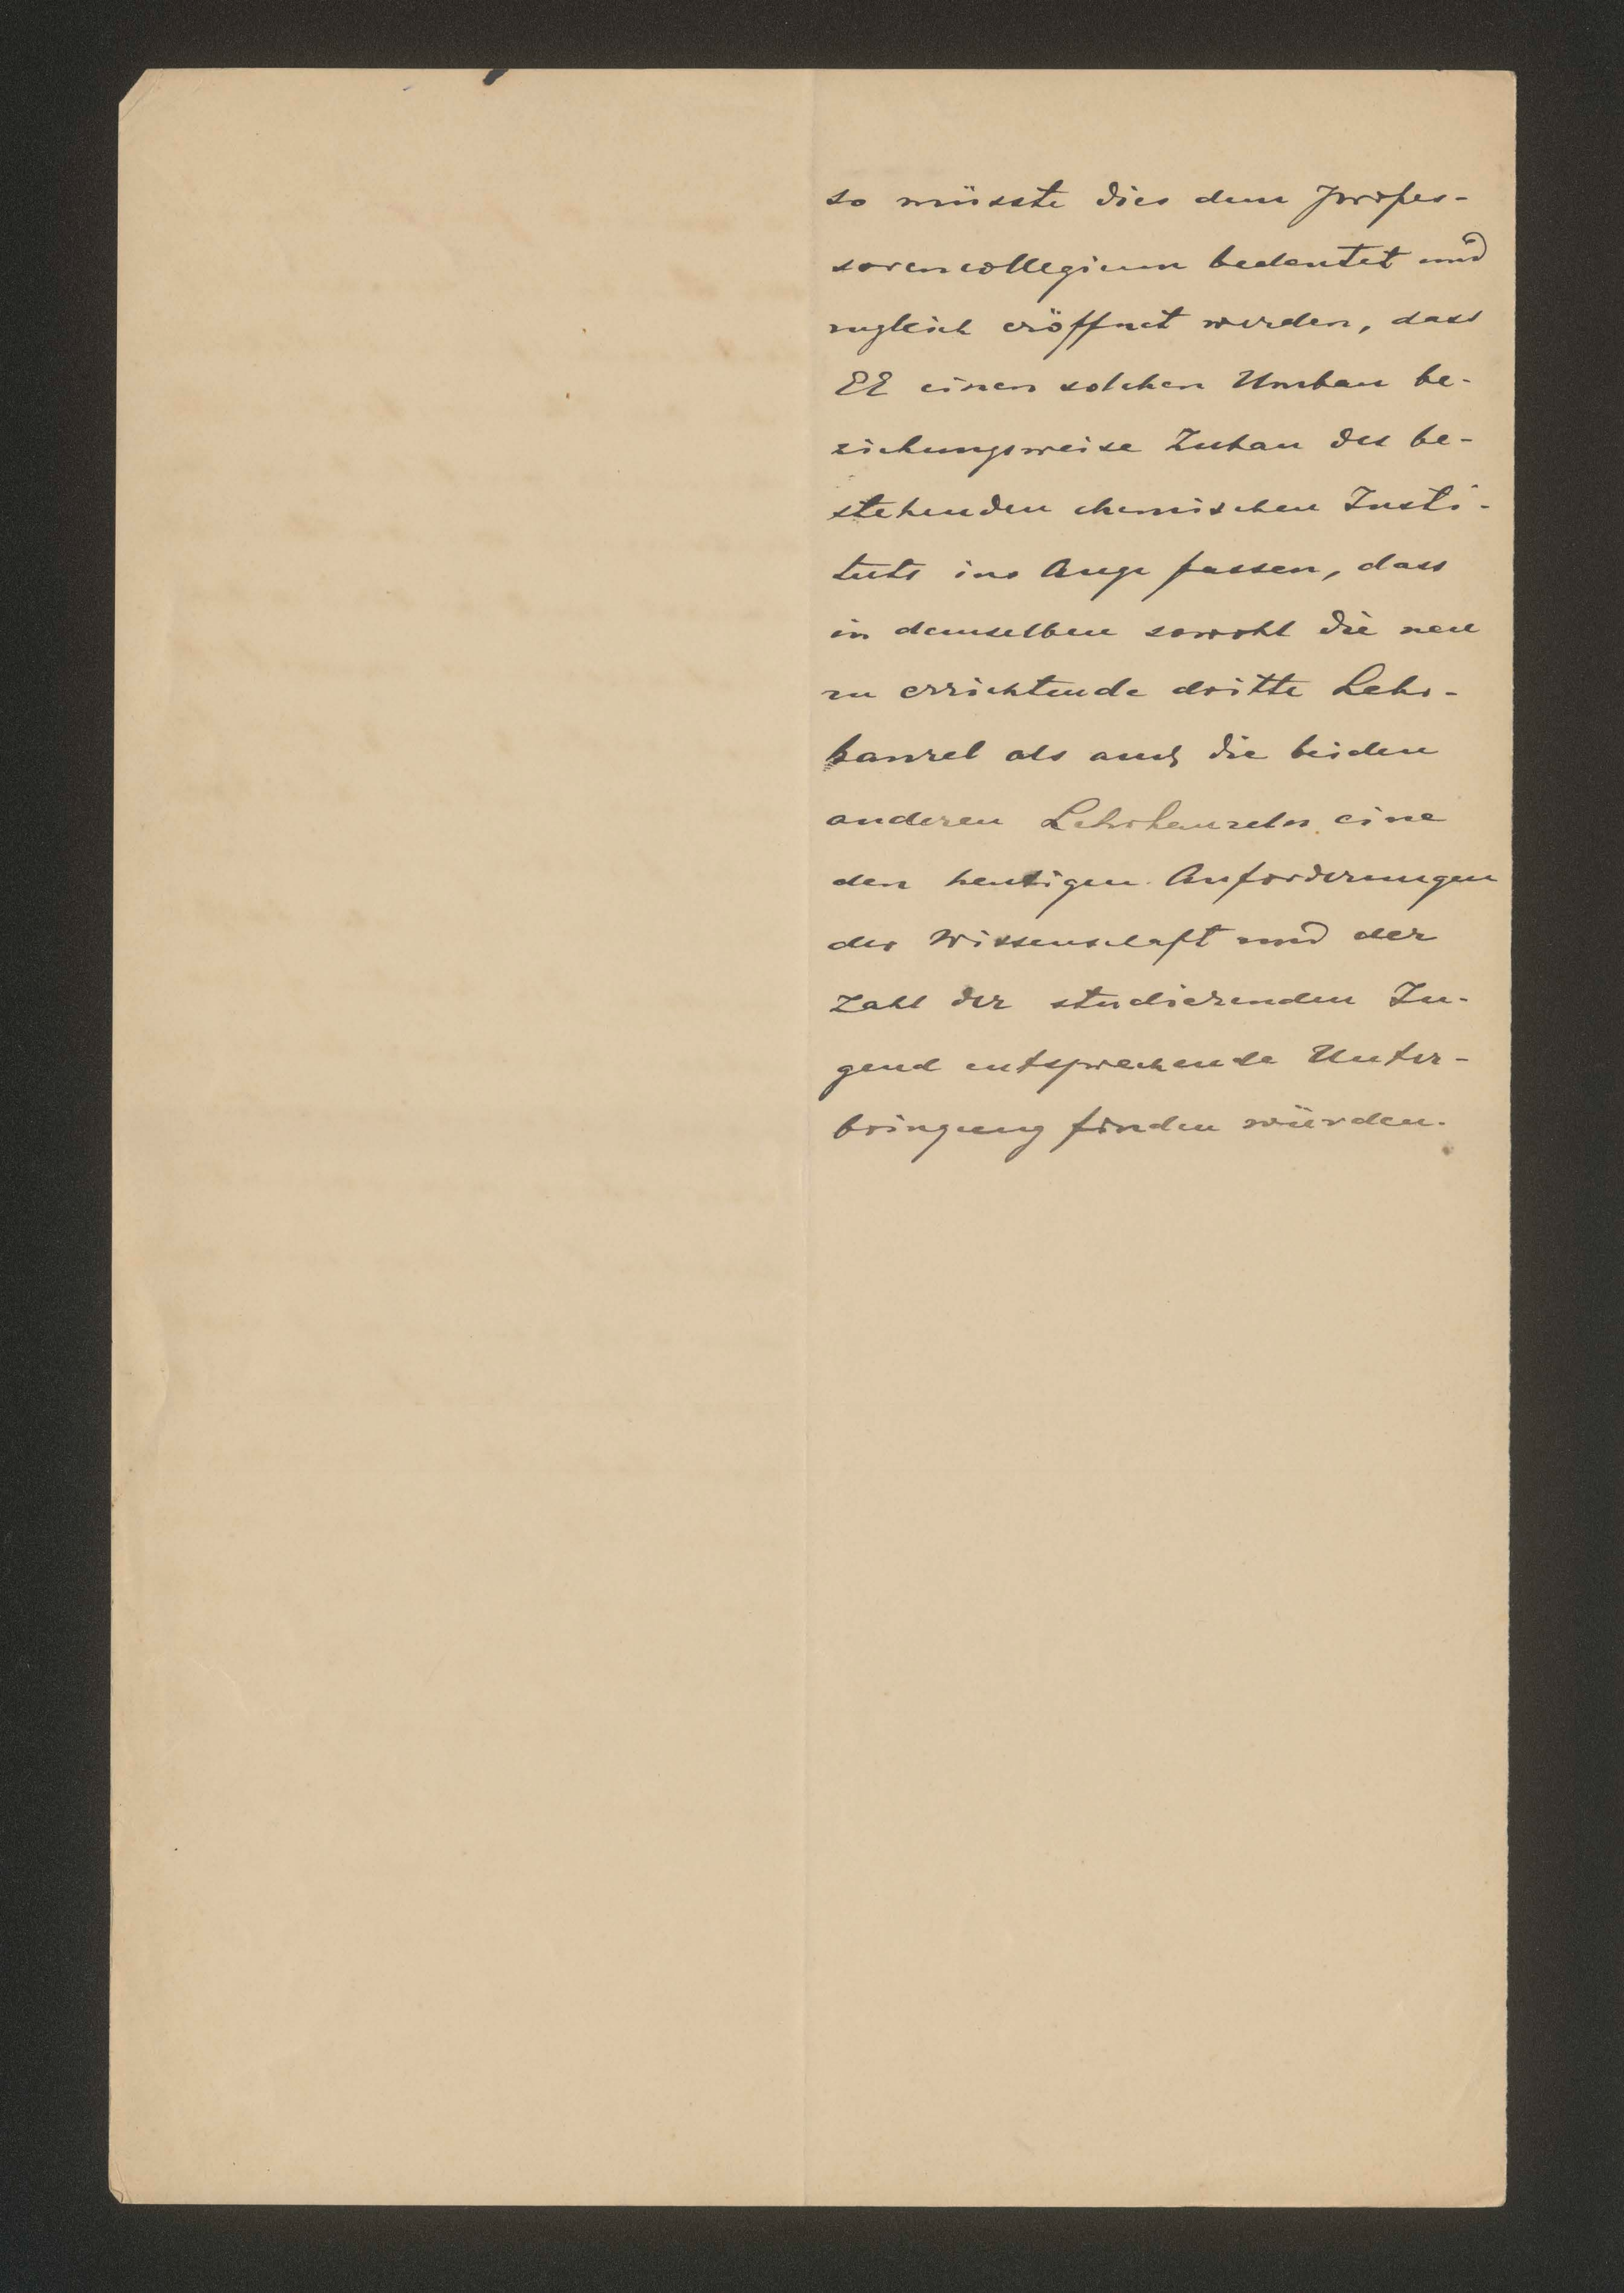 so müsste dies dem Profes-
sorencollegium bedeutet und
zugleich eröffnet werden, dass
EE einen solchen Umbau be-
ziehungsweise Zubau des be-
stehenden chemischen Insti-
tuts ins Auge fassen, dass
in demselben sowohl die neu
zu errichtende dritte Lehr-
kanzel als auch die beiden
anderen Lehrkanzeln eine
den heutigen Anforderungen
der Wissenschaft und der
Zahl der studierenden Ju-
gend entsprechende Unter-
bringung finden würden.